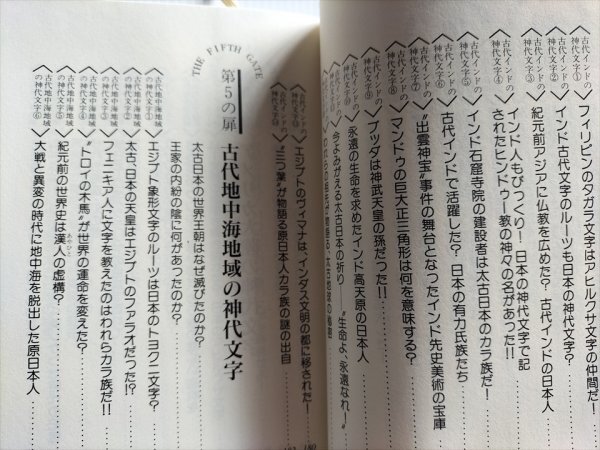 フィリピンのタガラ文字はアヒルクサ文字の仲間だ!
〈古代インドの神代文字①〉
インド古代文字のルーツも日本の神代文字?
〈古代インドの神代文字②〉
紀元前アジアに仏教を広めた? 古代インドの日本人
〈古代インドの神代文字③〉
インド人もびっくり! 日本の神代文字で記
されたヒンドゥー教の神々の名があった!!
〈古代インドの神代文字④〉
インド石窟寺院の建設者は太古日本のカラ族だ!
〈古代インドの神代文字⑤〉
古代インドで活躍した? 日本の有力氏族たち
〈古代インドの神代文字⑥〉
〝出雲神宝〟事件の舞台となったインド先史美術の宝庫
〈古代インドの神代文字⑦〉
マンドゥの巨大正三角形は何を意味する?
ブッダは神武天皇の孫だった!!
永遠の生命を求めたインド高天原の日本人
今よみがえる太古日本の祈り——〝生命よ、永遠なれ!〟
エジプトのヴィマナは、インダス文明の都に移された!
〝三つ葉〟が物語る原日本人カラ族の謎の出自
180
THE FIFTH GATE
第5の扉 古代地中海地域の神代文字
太古日本の世界王朝はなぜ滅びたのか?
王家の内紛の陰に何があったのか?
〈古代地中海地域の神代文字①〉
エジプト象形文字のルーツは日本のトヨクニ文字?
〈古代地中海地域の神代文字②〉
太古、日本の天皇はエジプトのファラオだった!?
〈古代地中海地域の神代文字③〉
フェニキア人に文字を教えたのはわれらカラ族だ!!
〈古代地中海地域の神代文字④〉
〝トロイの木馬〟が世界の運命を変えた?
〈古代地中海地域の神代文字⑤〉
紀元前の世界史は漢人の虚構?
〈古代地中海地域の神代文字⑥〉
大戦と異変の時代に地中海を脱出した原日本人